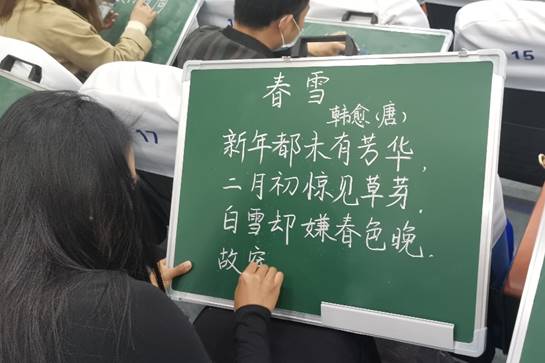 春雪
韩愈(唐)
新年都未有芳华,
二月初惊见草芽.
白雪却嫌春色晚.
故
17
15